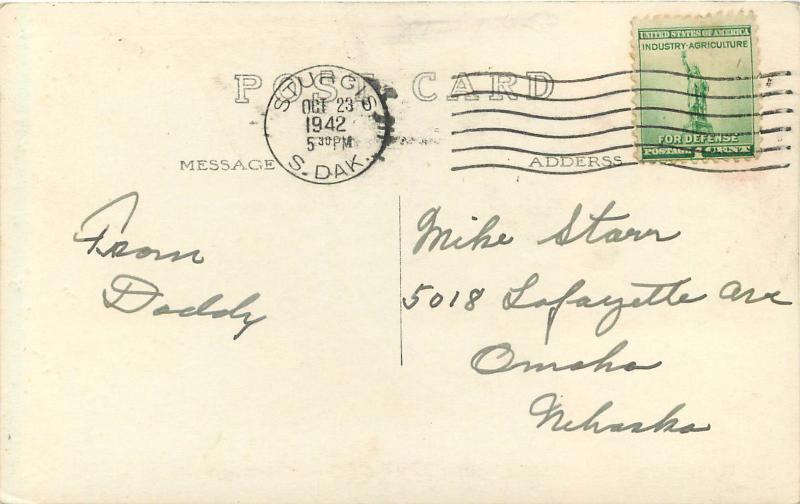 POST CARD
STURGIS
OCT 23
1942
5 30 PM
S. DAK.
UNITED STATES OF AMERICA
INDUSTRY-AGRICULTURE
FOR DEFENSE
POSTAGE 1 CENT
MESSAGE
ADDERSS
From
Daddy
Mike Starr
5018 Lafayette Ave
Omaha
Nebraska